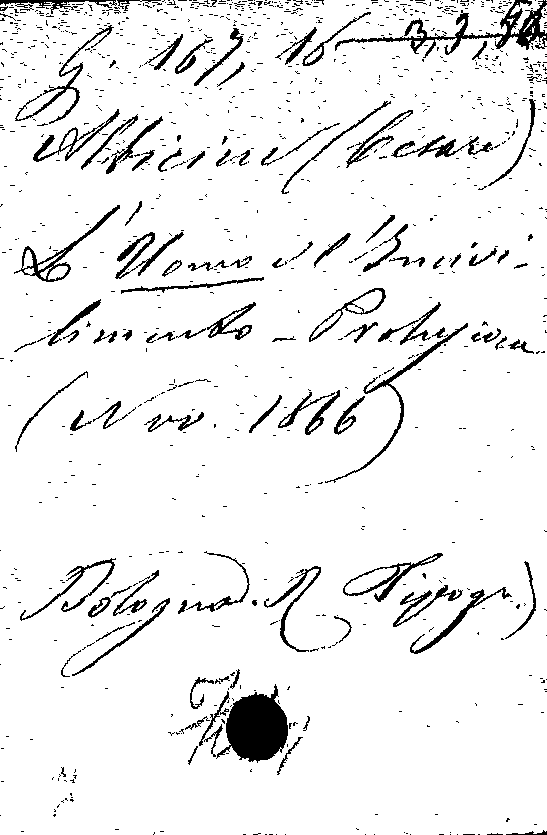 G. 167, 16 3, 9, 56
Albicini (Cesare)
L'Uomo e l'Incivi-
limento - Prolusione
(Nov. 1866)
Bologna. R Tipogr.)